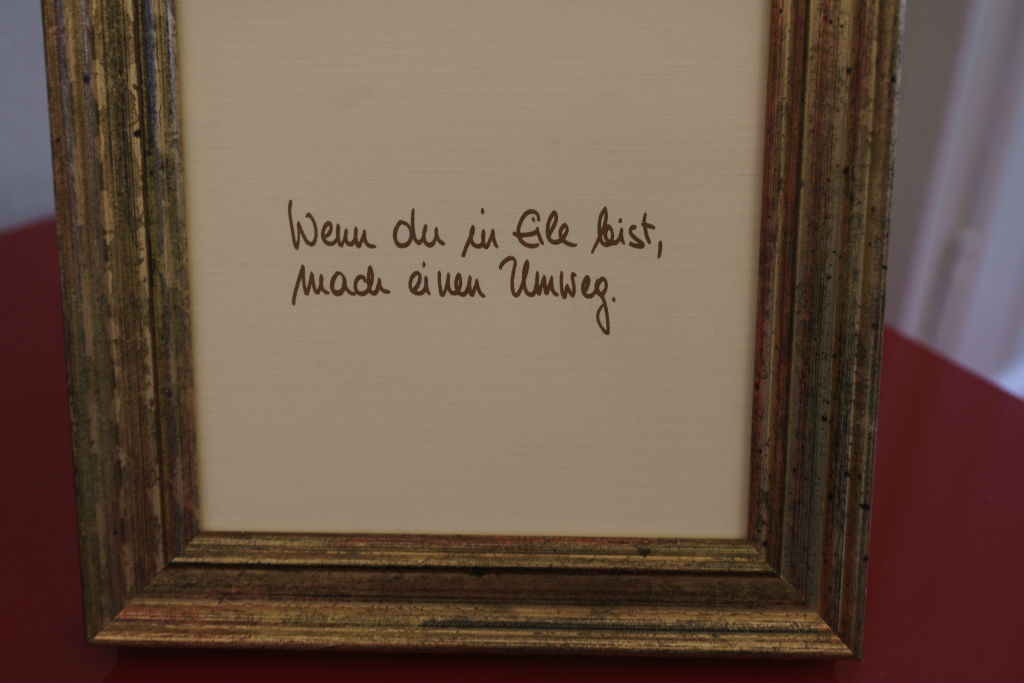 Wenn du in Eile bist,
mach einen Umweg.